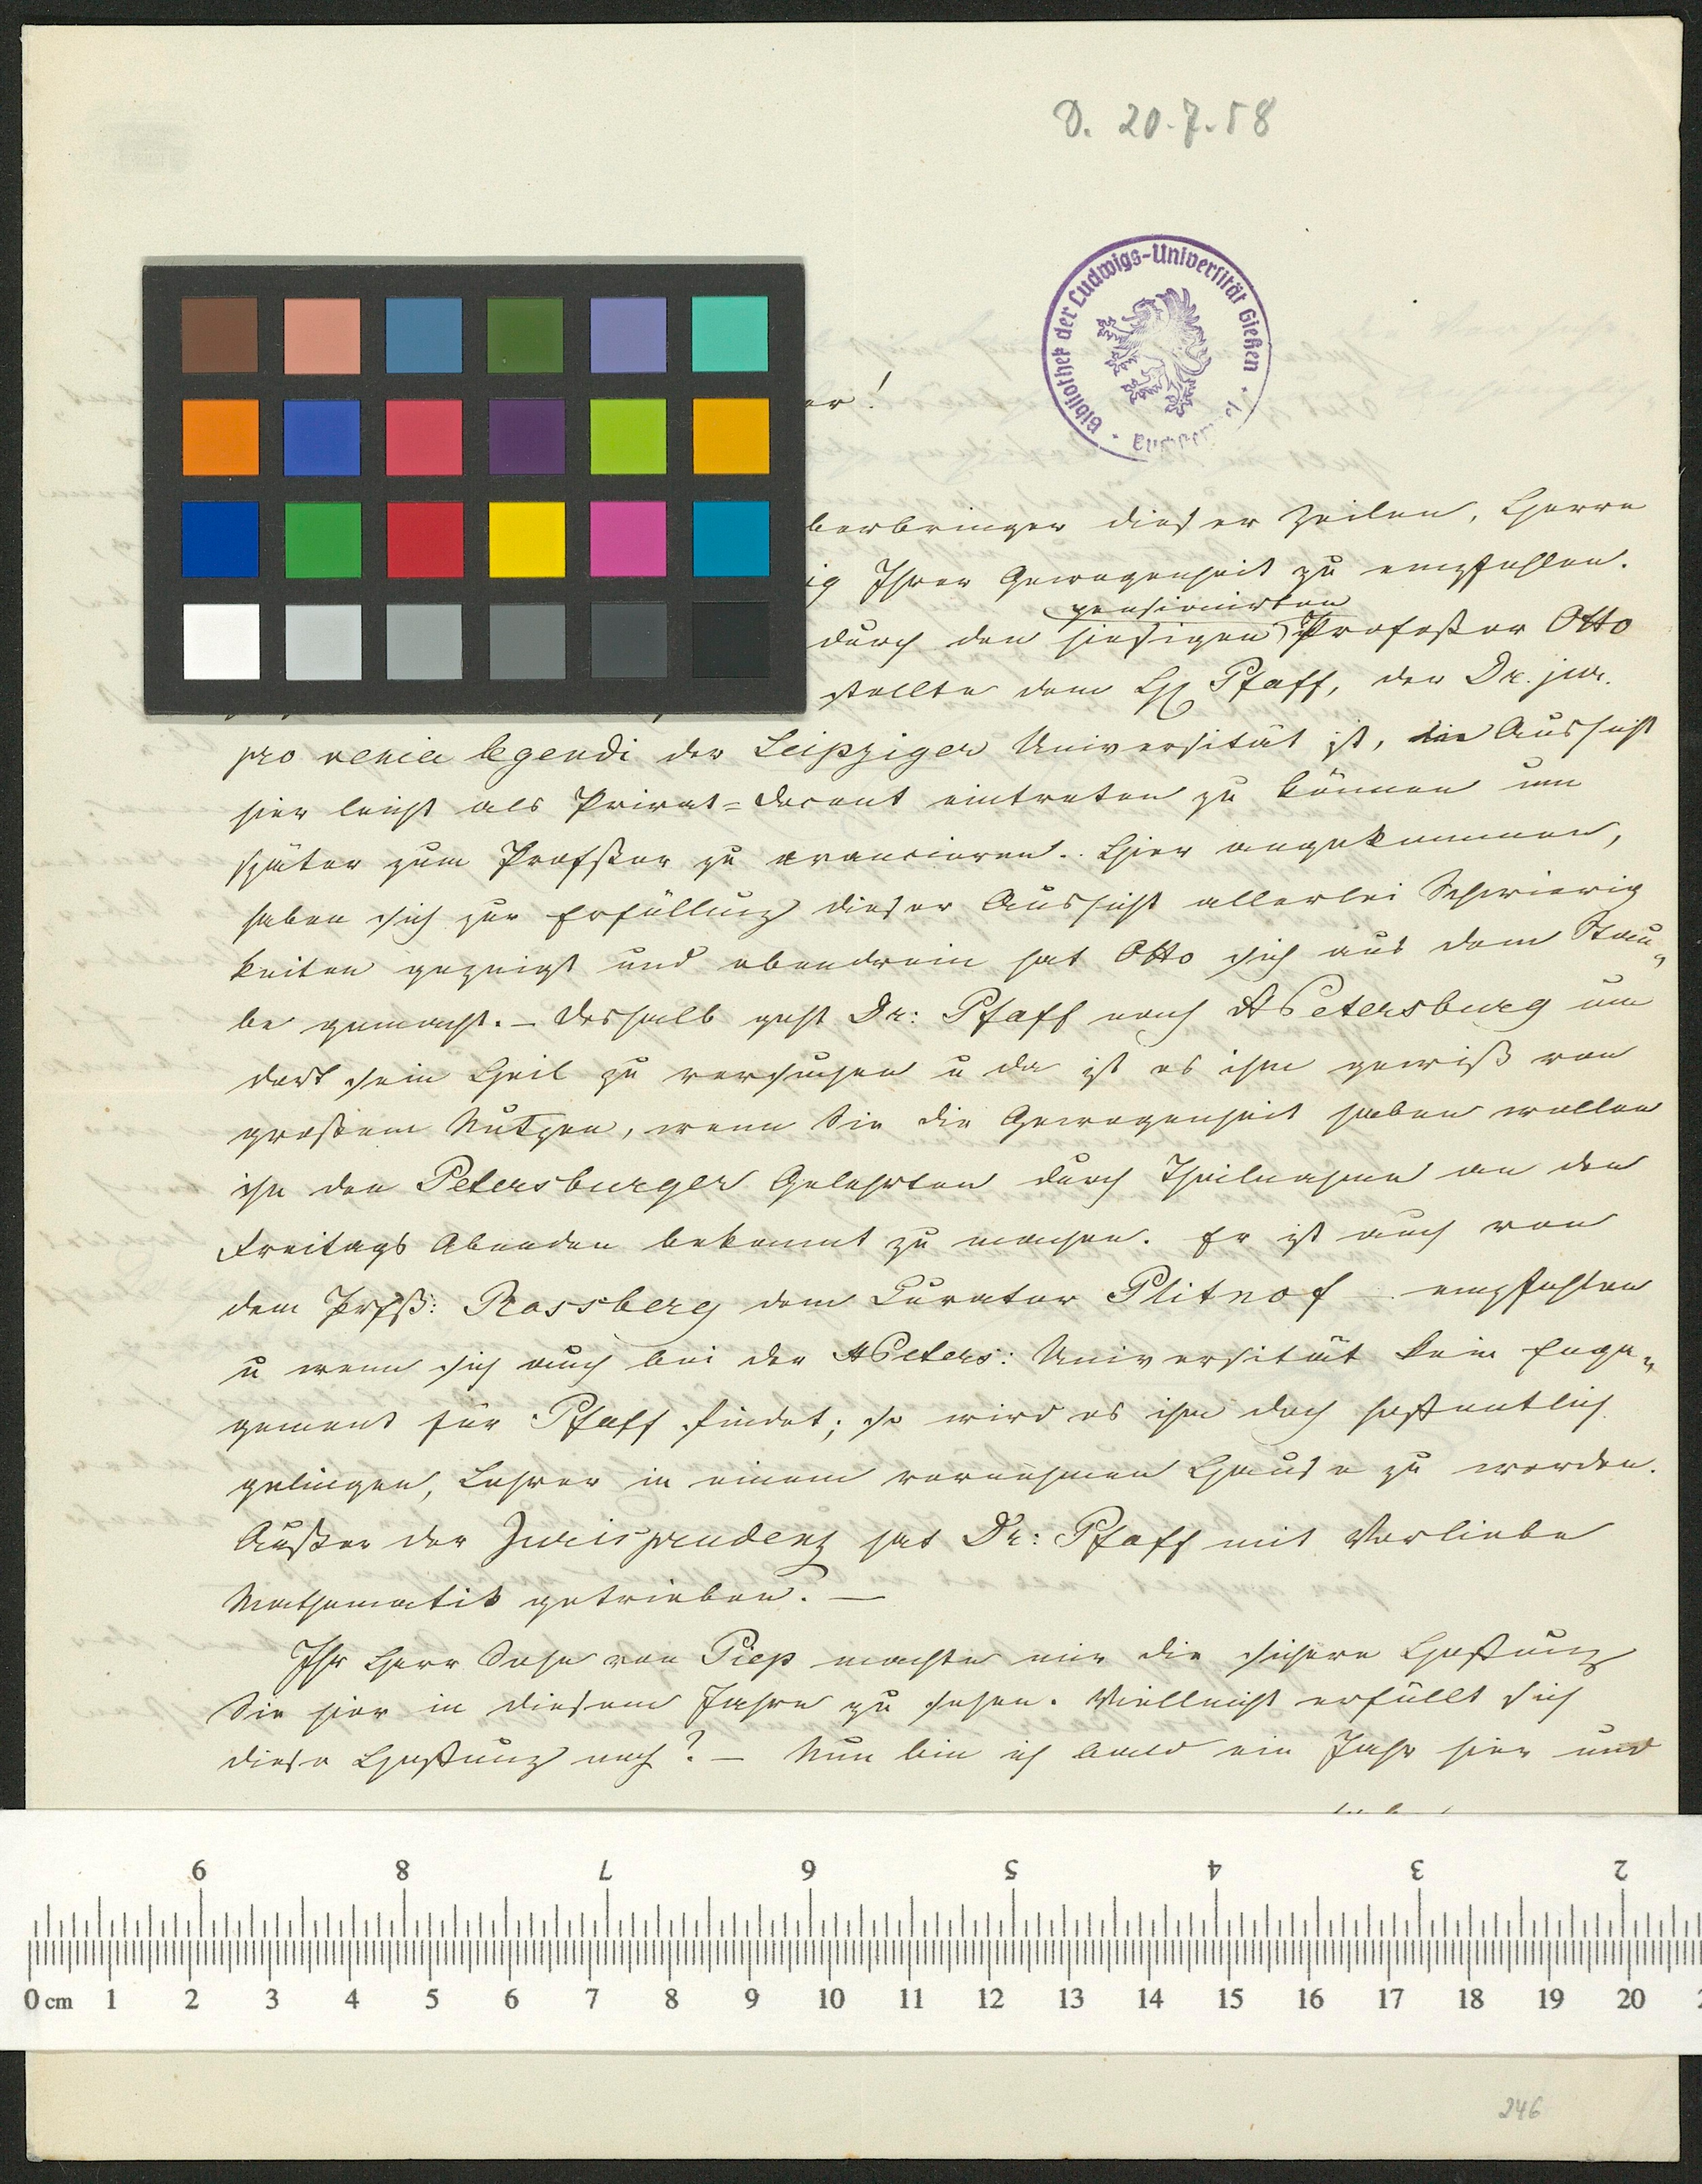 D. 20.7.58
Bibliothek der Ludwigs-Universität Gießen
er!
berbringer dieser Zeilen, Herrn
ig Ihrer Gewogenheit zu empfehlen.
pensionirten
durch den hiesigen Professor Otto
stellte dem H Pfaff, der Dr. jur.
pro venia legendi der Leipziger Universität ist, die Aussicht
hier leicht als Privat=Docent eintreten zu können um
später zum Profssor zu avancieren. Hier angekommen,
haben sich zur Erfüllung dieser Aussicht allerlei Schwierig
keiten gezeigt und obendrein hat Otto sich aus dem Stau„
be gemacht. – Deshalb geht Dr: Pfaff nach St Petersburg um
dort sein Heil zu versuchen u da ist es ihm gewiß von
großem Nutzen, wenn Sie die Gewogenheit haben wollen
ihn den Petersburger Gelehrten durch Theilnahme an den
Freitags Abenden bekannt zu machen. Er ist auch von
dem Prfß: Rossberg dem Curator Plitnof empfohlen
u wenn sich auch bei der St Peters: Universität kein Enga„
gement für Pfaff findet; so wird es ihm doch hoffentlich
gelingen, Lehrer in einem vornehmen Hause zu werden.
Außer der Jurisprudenz hat Dr: Pfaff mit Vorliebe
Mathematik getrieben. —
Ihr Herr Sohn von Piep machte mir die sichere Hoffnung
Sie hier in diesem Jahre zu sehen. Vielleicht erfüllt sich
diese Hoffnung noch? – Nun bin ich bald ein Jahr hier und
9 8 7 6 5 4 3 2
0 cm 1 2 3 4 5 6 7 8 9 10 11 12 13 14 15 16 17 18 19 20
246